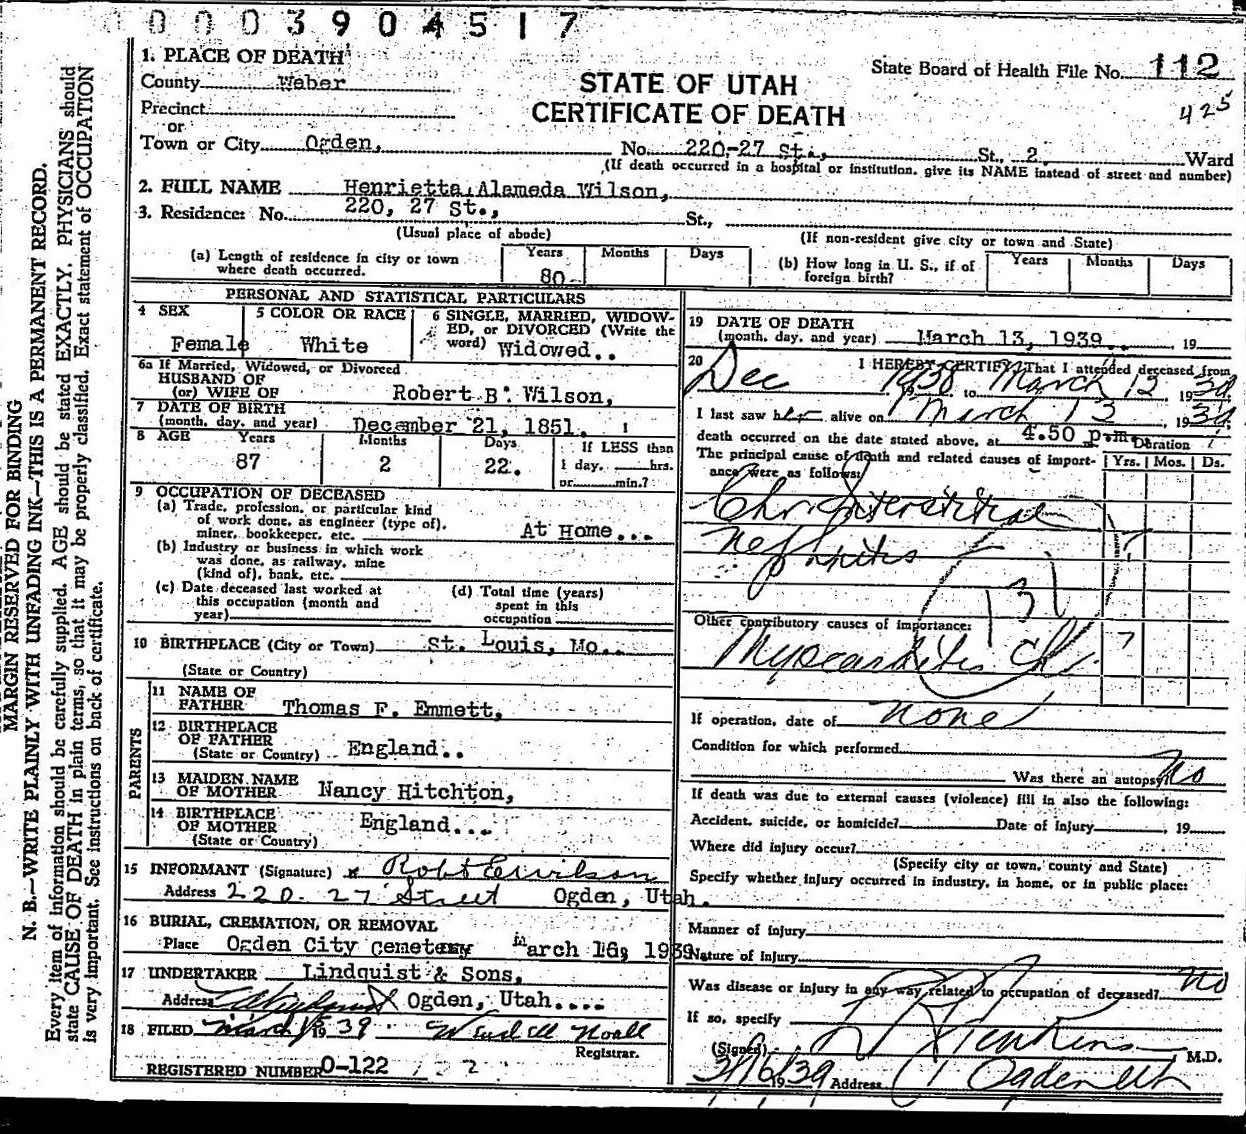 0003904517
1. PLACE OF DEATH
County Weber
STATE OF UTAH
CERTIFICATE OF DEATH
State Board of Health File No. 112
425
Precinct
or
Town or City Ogden, No. 220-27 St., St., 2. Ward
(If death occurred in a hospital or institution, give its NAME instead of street and number)
2. FULL NAME Henrietta Alameda Wilson,
3. Residence: No. 220, 27 St., St.,
(Usual place of abode) (If non-resident give city or town and State)
(a) Length of residence in city or town where death occurred. Years 80 Months Days
(b) How long in U. S., if of foreign birth? Years Months Days
PERSONAL AND STATISTICAL PARTICULARS
4 SEX Female
5 COLOR OR RACE White
6 SINGLE, MARRIED, WIDOWED, or DIVORCED (Write the word) Widowed..
6a If Married, Widowed, or Divorced
HUSBAND OF
(or) WIFE OF Robert B. Wilson,
7 DATE OF BIRTH
(month, day, and year) December 21, 1851.
8 AGE Years 87 Months 2 Days 22.
If LESS than
1 day, hrs.
or min.?
9 OCCUPATION OF DECEASED
(a) Trade, profession, or particular kind
of work done, as engineer (type of),
miner, bookkeeper, etc. At Home...
(b) Industry or business in which work
was done, as railway, mine
(kind of), bank, etc.
(c) Date deceased last worked at
this occupation (month and
year)
(d) Total time (years)
spent in this
occupation
10 BIRTHPLACE (City or Town) St. Louis, Mo..
(State or Country)
PARENTS
11 NAME OF
FATHER Thomas F. Emmett,
12 BIRTHPLACE
OF FATHER England..
(State or Country)
13 MAIDEN NAME
OF MOTHER Nancy Hitchton,
14 BIRTHPLACE
OF MOTHER England...
(State or Country)
15 INFORMANT (Signature) x Robt E Wilson
Address 220. 27 Street Ogden, Utah.
16 BURIAL, CREMATION, OR REMOVAL
Place Ogden City Cemetery March 16, 1939
17 UNDERTAKER Lindquist & Sons,
Address Ogden, Utah....
18 FILED March 1939 Noall
Registrar.
REGISTERED NUMBER 0-122
19 DATE OF DEATH
(month, day, and year) March 13, 1939.., 19
20 I HEREBY CERTIFY, That I attended deceased from
Dec 1938 to March 13 1939
I last saw her alive on March 13, 1939
death occurred on the date stated above, at 4.50 p.m.
Duration
The principal cause of death and related causes of importance were as follows: Yrs. Mos. Ds.
Chr Interstitial
Nephritis ?
131
Other contributory causes of importance:
Myocarditis Ch. ?
If operation, date of none
Condition for which performed
Was there an autopsy No
If death was due to external causes (violence) fill in also the following:
Accident, suicide, or homicide? Date of injury , 19
Where did injury occur?
(Specify city or town, county and State)
Specify whether injury occurred in industry, in home, or in public place:
Manner of Injury
Nature of Injury
Was disease or injury in any way related to occupation of deceased? No
If so, specify
(Signed) Jenkins M.D.
3/16/39 19 Address Ogden Utah
MARGIN RESERVED FOR BINDING
N. B.—WRITE PLAINLY WITH UNFADING INK—THIS IS A PERMANENT RECORD.
Every item of information should be carefully supplied. AGE should be stated EXACTLY. PHYSICIANS should
state CAUSE OF DEATH in plain terms, so that it may be properly classified. Exact statement of OCCUPATION
is very important. See instructions on back of certificate.